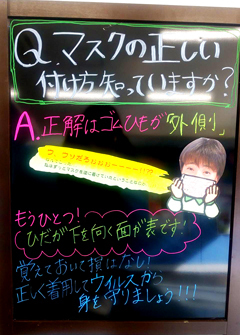 Q.マスクの正しい
付け方知っていますか?
A.正解はゴムひもが「外側」
ウ、ウソだろぉぉぉーーーー!!??
もうひとつ!
ひだが下を向く面が表です!
覚えておいて損はなし!
正しく着用してウィルスから
身を守りましょう!!!